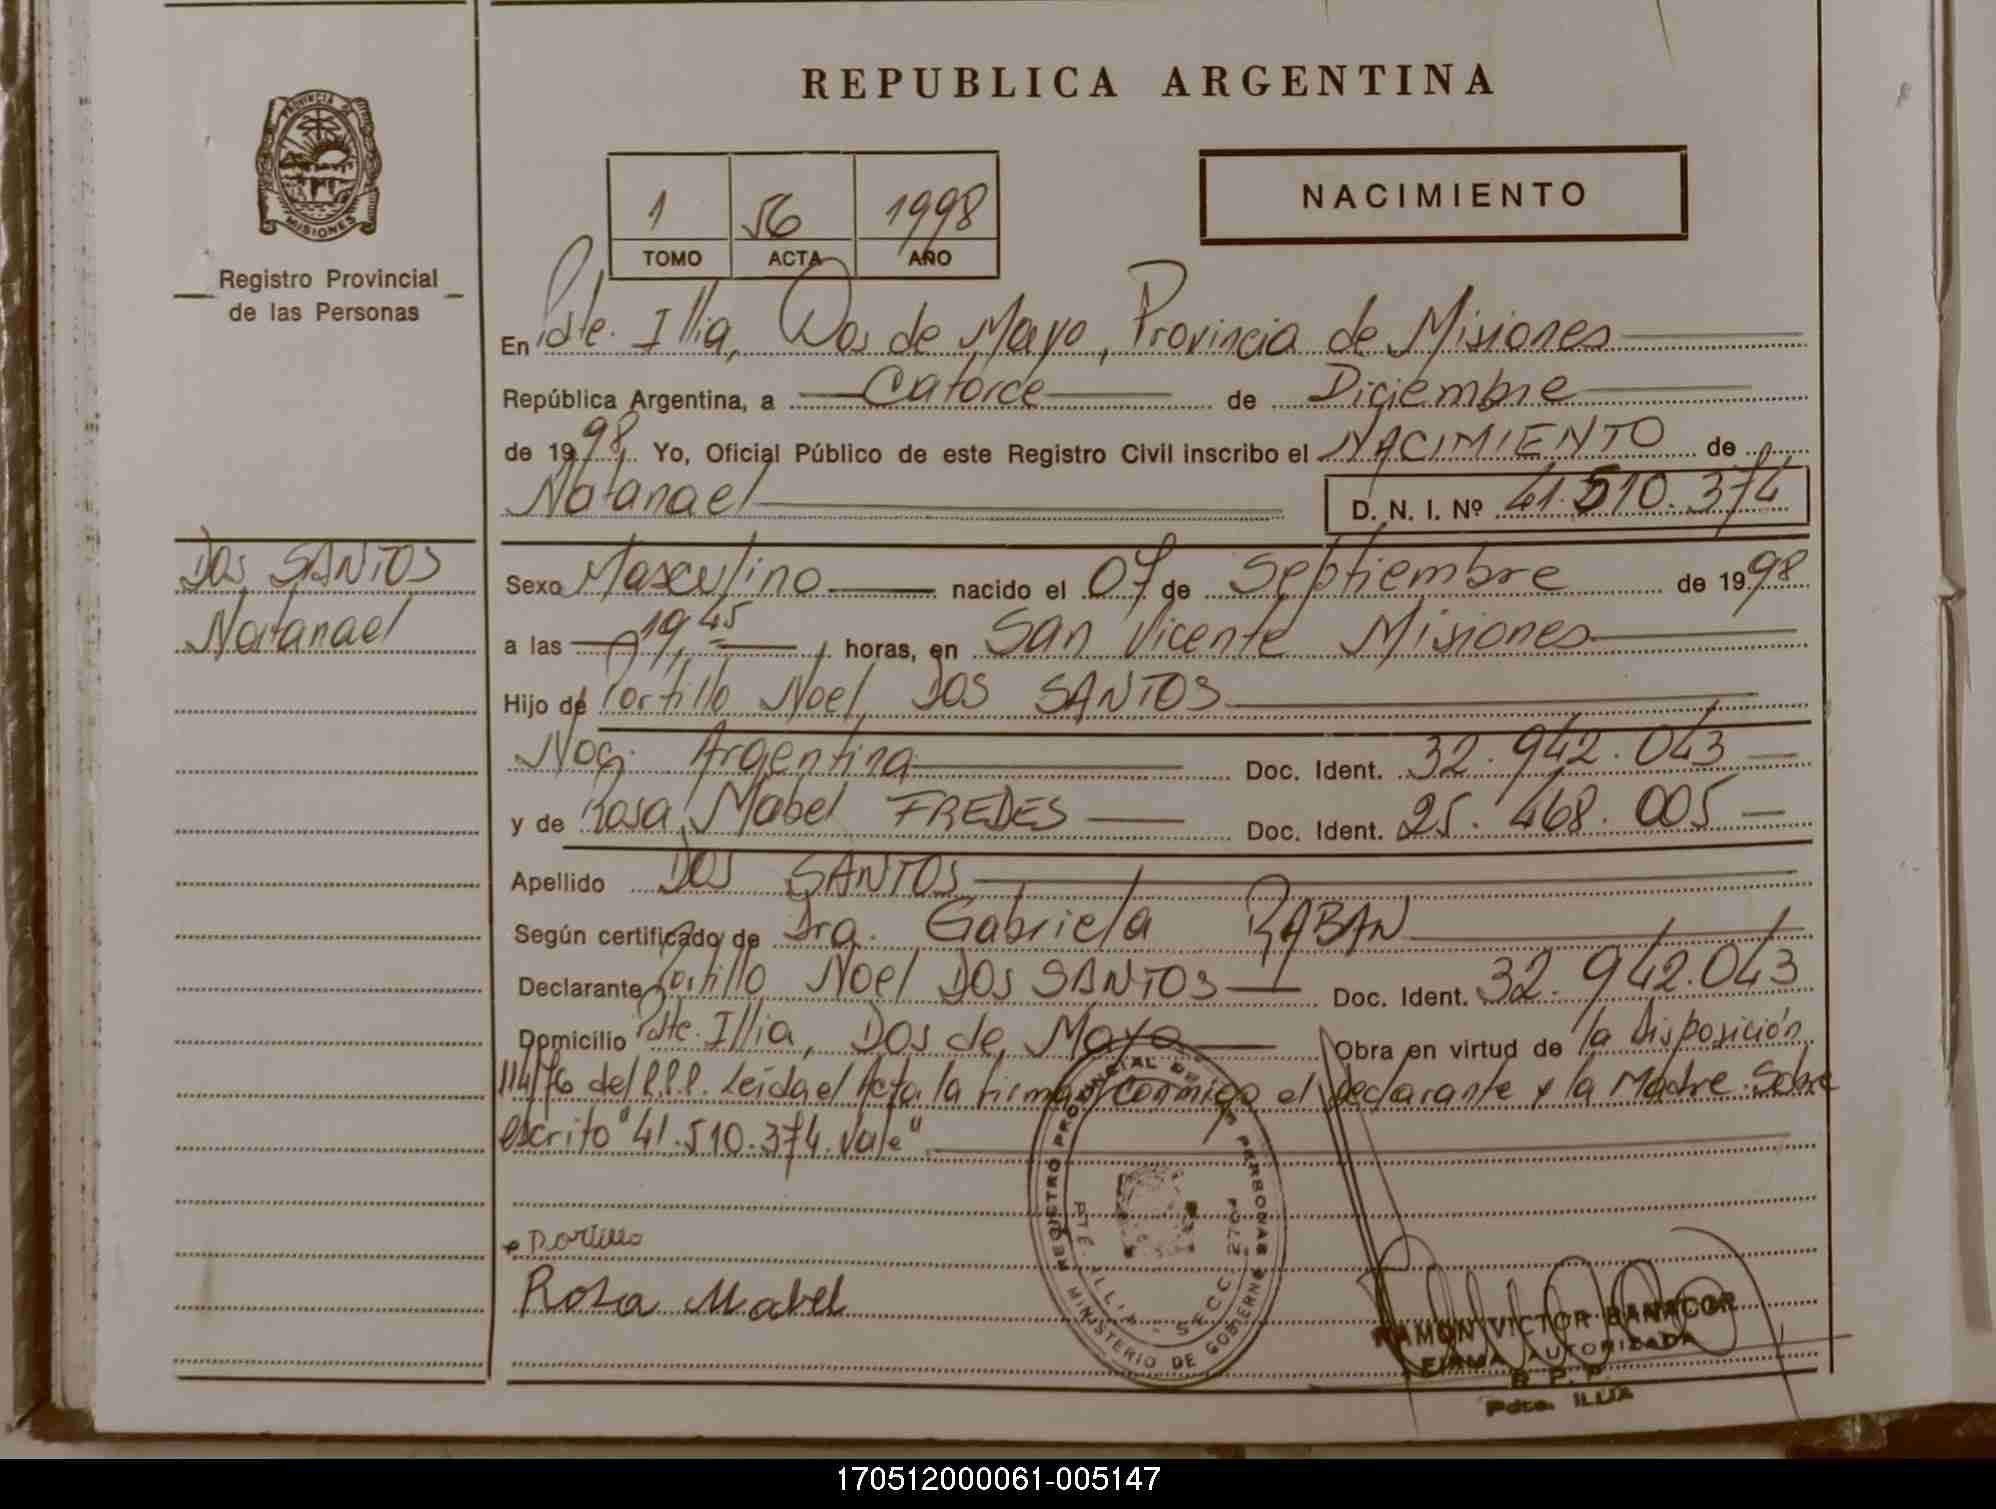 PROVINCIA DE
MISIONES
Registro Provincial
de las Personas
REPUBLICA ARGENTINA
1 56 1998
TOMO ACTA AÑO
NACIMIENTO
En Pdte. Illia, Dos de Mayo, Provincia de Misiones
República Argentina, a Catorce de Diciembre
de 1998. Yo, Oficial Público de este Registro Civil inscribo el NACIMIENTO de
Natanael D. N. I. Nº 41.510.374
DOS SANTOS
Natanael
Sexo Masculino nacido el 07 de Septiembre de 1998
a las 19,45 horas, en San Vicente Misiones
Hijo de Portillo Noel DOS SANTOS
Nac. Argentina Doc. Ident. 32.942.043
y de Rosa Mabel FREDES Doc. Ident. 25.468.005
Apellido DOS SANTOS
Según certificado de Dra. Gabriela RABAN
Declarante Portillo Noel DOS SANTOS Doc. Ident. 32.942.043
Domicilio Pdte. Illia, Dos de Mayo Obra en virtud de la Disposición
114/76 del R.P.P. Leída el Acta la firman conmigo el declarante y la Madre. Sobre
escrito "41.510.374. Vale"
REGISTRO PROVINCIAL DE LAS PERSONAS
MINISTERIO DE GOBIERNO
PTE. ILLIA - SECC. 2707
Portillo
Rosa Mabel
RAMON VICTOR BANACOR
FIRMA AUTORIZADA
R. P. P.
Pdte. ILLIA
170512000061-005147